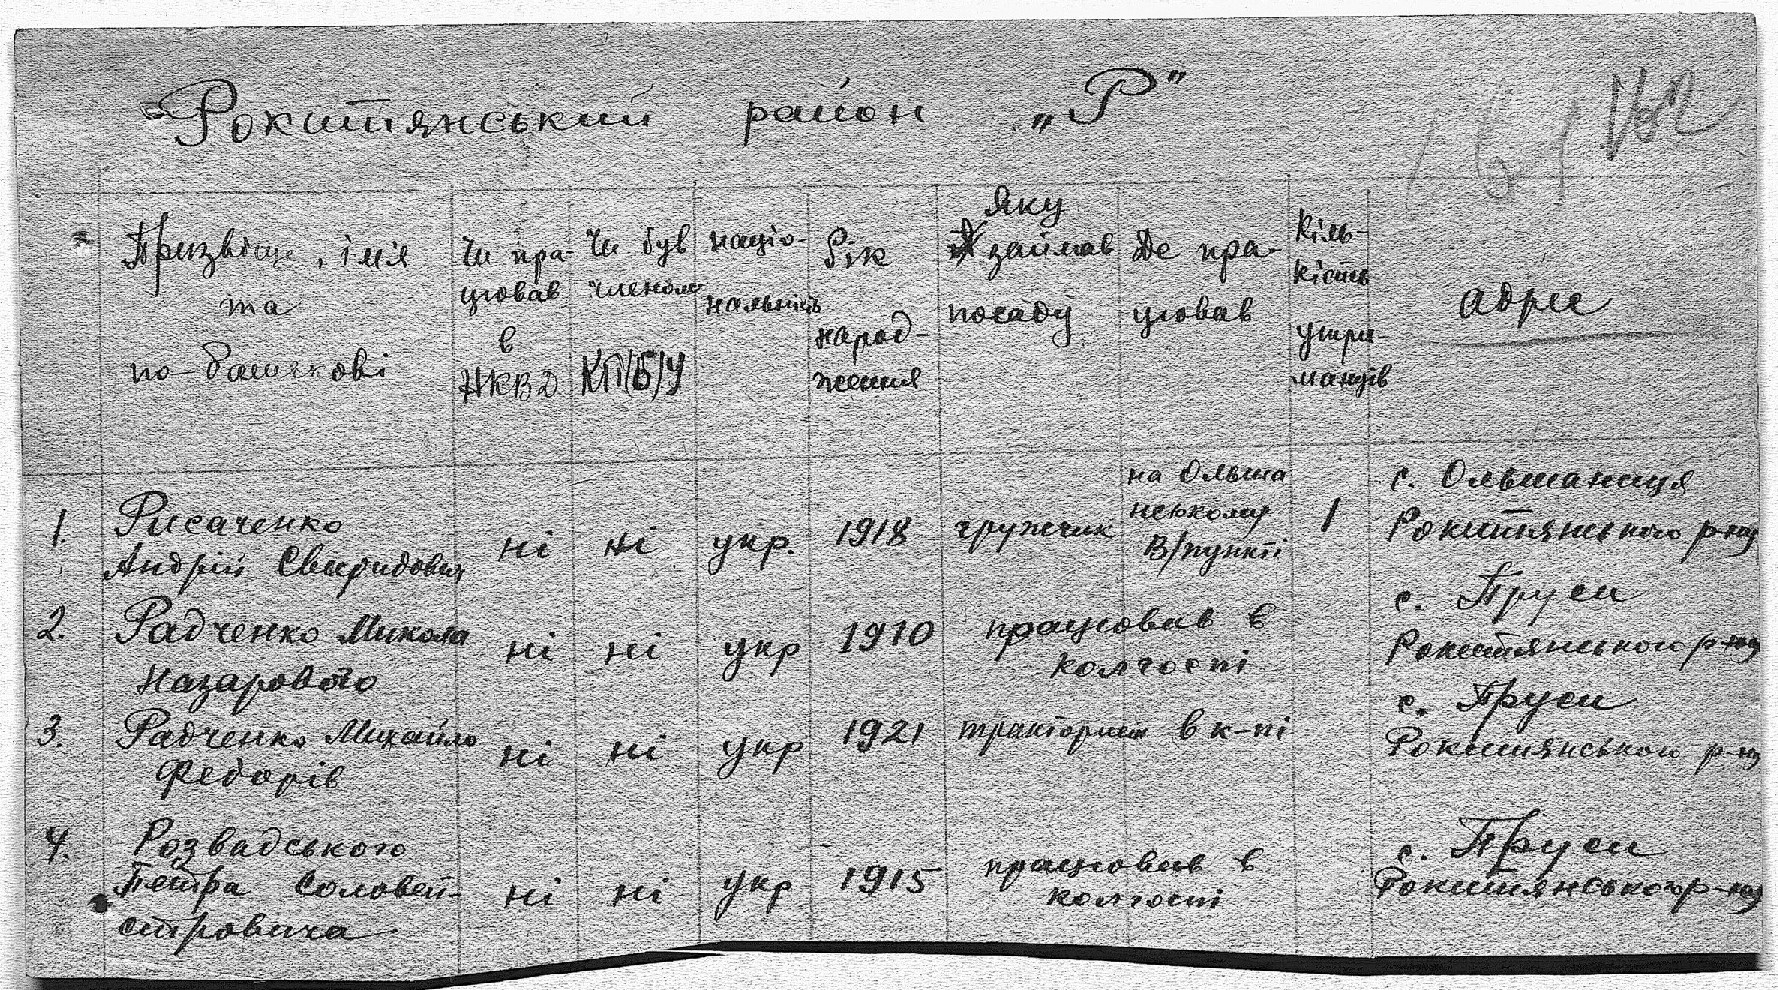 Рокитянський район „Р”
162
Призвіще, імя
та
по-батькові
Чи пра-
цював
в
НКВД
Чи був
членом
КП(б)У
націо-
нальність
Рік
народ-
ження
Яку
займав
посаду
Де пра-
цював
Кіль-
кість
утри-
манців
адрес
1. Рисаченко
Андрій Свиридович
ні ні укр. 1918 грузчик
на Ольша
нському
В/пункті
1
с. Ольшаниця
Рокитянського р-ну
2. Радченко Микола
Назарового
ні ні укр 1910
працював в
колгоспі
с. Пруси
Рокитянського р-ну
3. Радченко Михайло
Федорів
ні ні укр 1921 тракторист в к-пі
с. Пруси
Рокитянського р-ну
4. Розвадського
Петра Соловей-
стровича
ні ні укр 1915
працював в
колгоспі
с. Пруси
Рокитянського р-ну